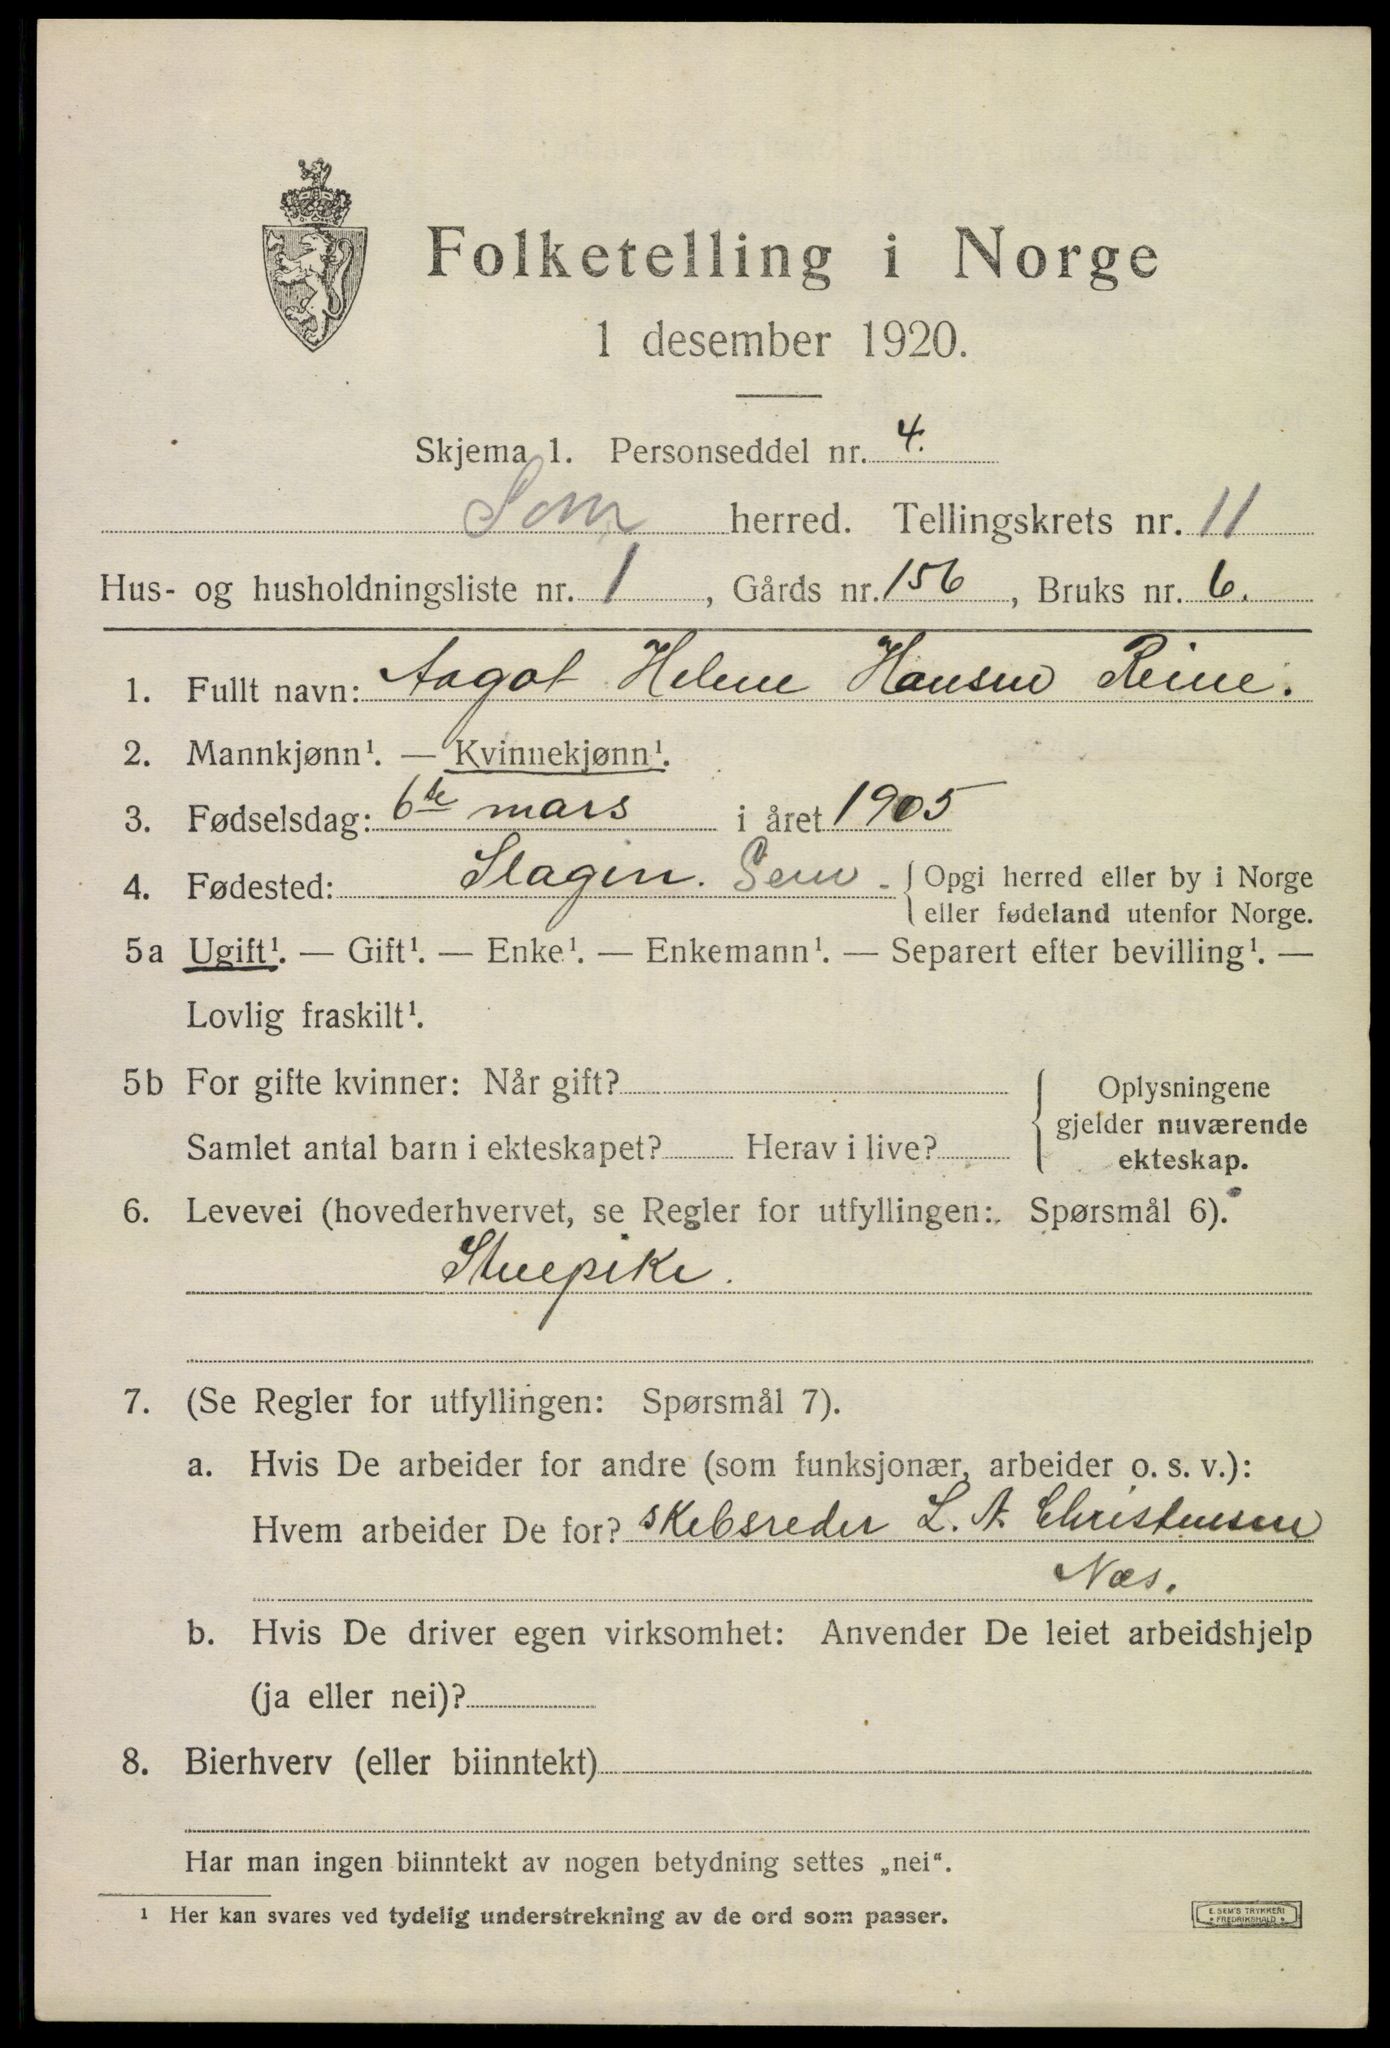 Folketelling i Norge
1 desember 1920.
Skjema 1. Personseddel nr. 4.
Sem herred. Tellingskrets nr. 11
Hus- og husholdningsliste nr. 1, Gårds nr. 156, Bruks nr. 6.
1. Fullt navn: Aagot Helene Hansen Reine.
2. Mannkjønn¹. — Kvinnekjønn¹.
3. Fødselsdag: 6te mars i året 1905
4. Fødested: Slagen. Sem. { Opgi herred eller by i Norge
eller fødeland utenfor Norge.
5a Ugift¹. — Gift¹. — Enke¹. — Enkemann¹. — Separert efter bevilling¹. —
Lovlig fraskilt¹.
5b For gifte kvinner: Når gift?
Samlet antal barn i ekteskapet? Herav i live?
Oplysningene
gjelder nuværende
ekteskap.
6. Levevei (hovederhvervet, se Regler for utfyllingen: Spørsmål 6).
Stuepike.
7. (Se Regler for utfyllingen: Spørsmål 7).
a. Hvis De arbeider for andre (som funksjonær, arbeider o. s. v.):
Hvem arbeider De for? skebsreder L. A. Christensen
Næs.
b. Hvis De driver egen virksomhet: Anvender De leiet arbeidshjelp
(ja eller nei)?
8. Bierhverv (eller biinntekt)
Har man ingen biinntekt av nogen betydning settes „nei“.
¹ Her kan svares ved tydelig understrekning av de ord som passer.
E. SEM'S TRYKKERI
FREDRIKSHALD